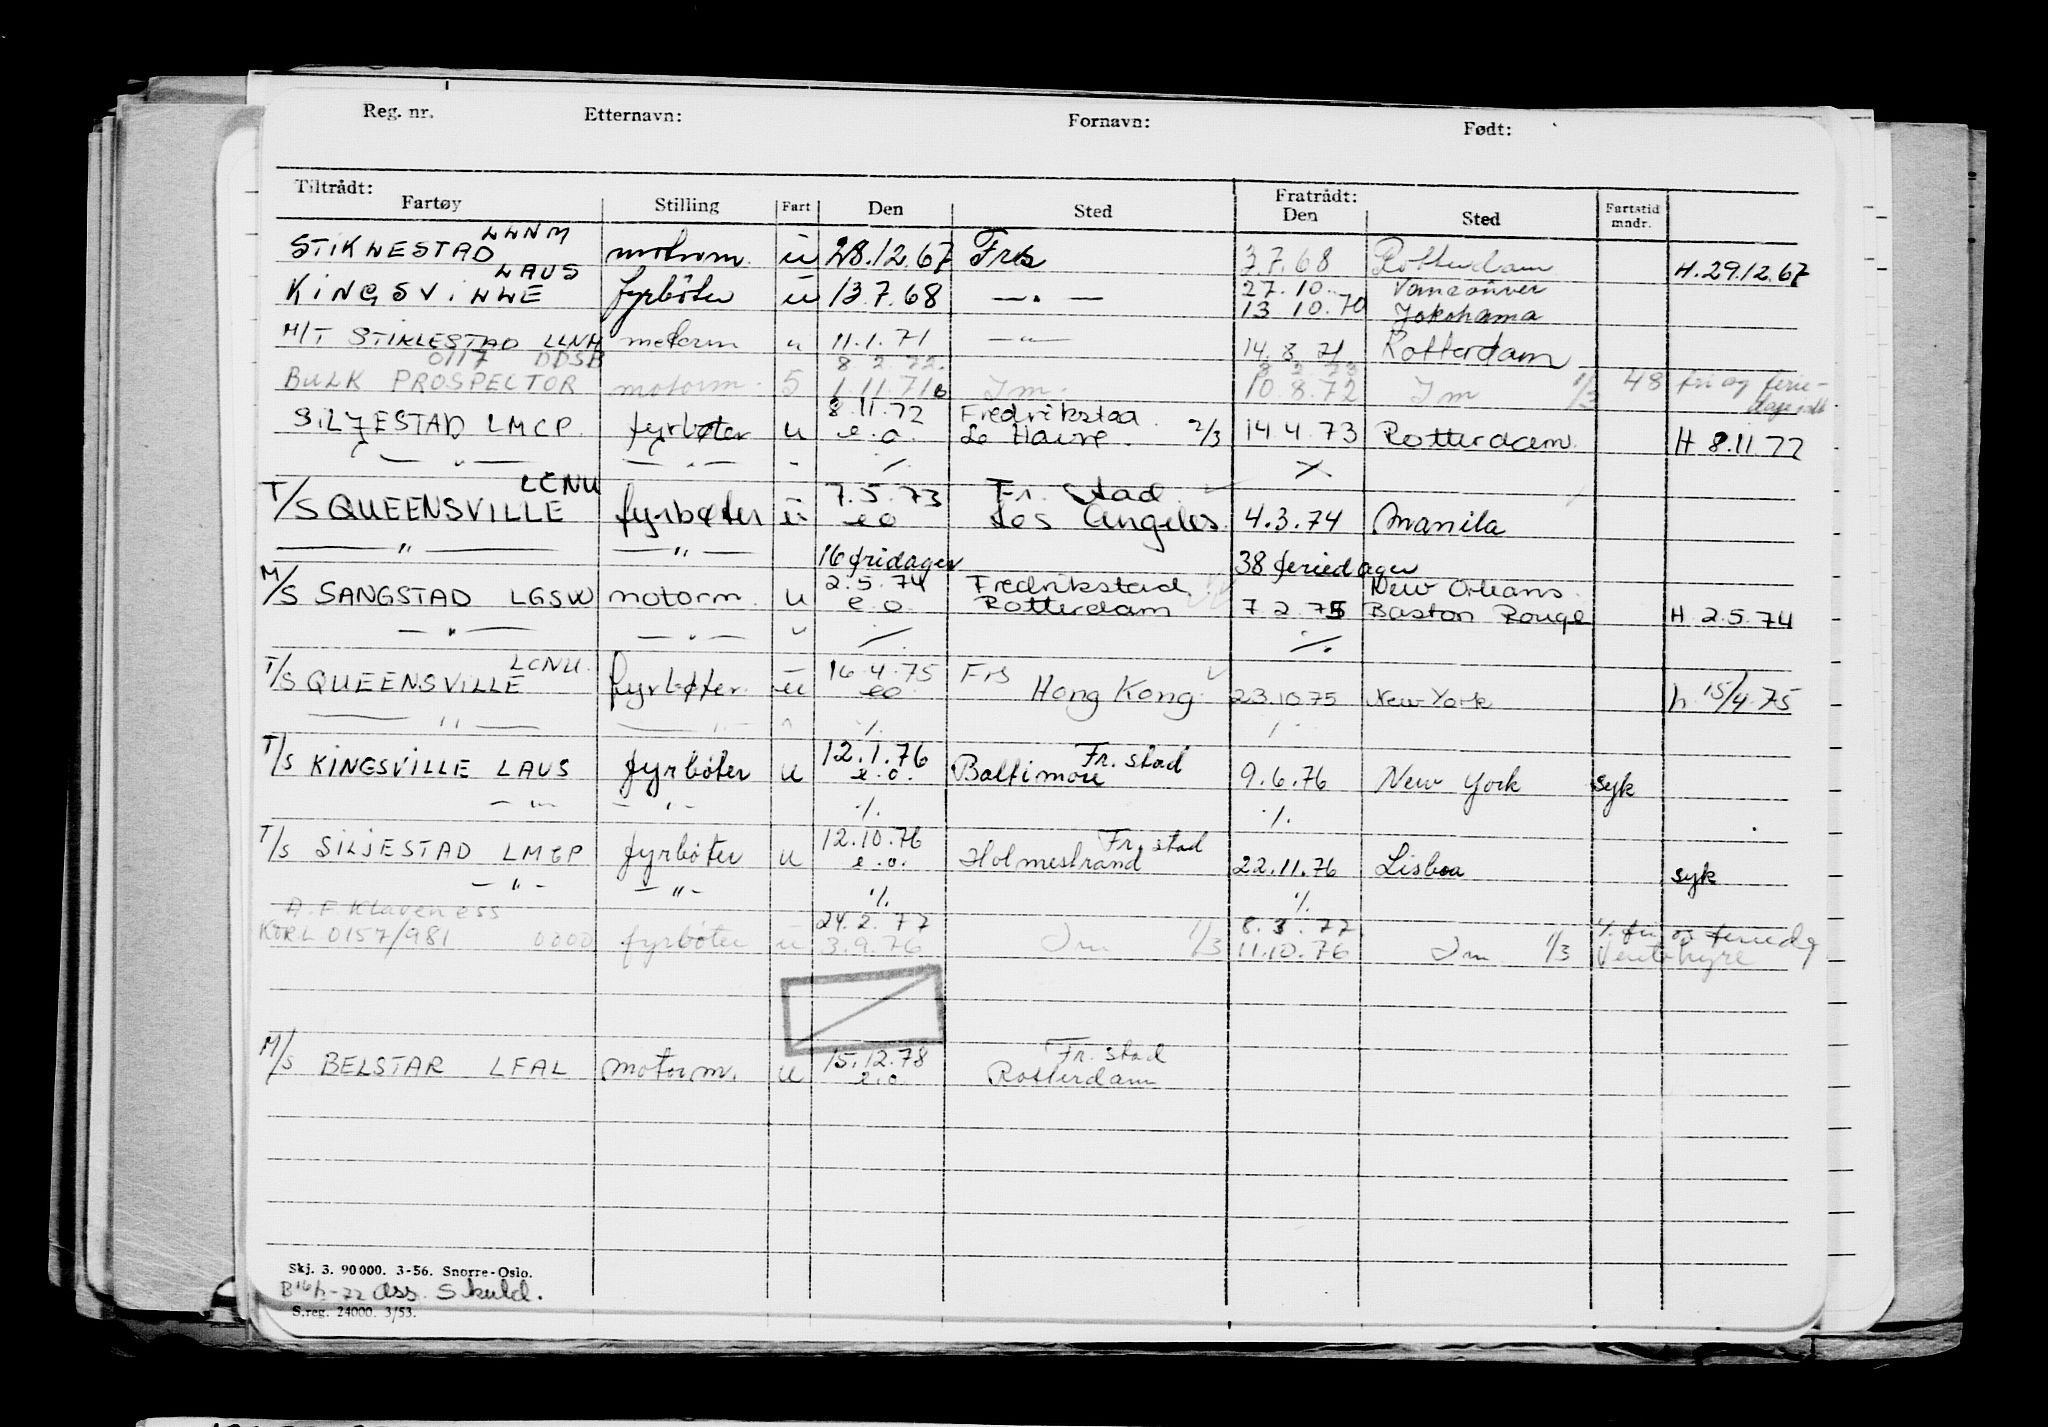 Reg. nr. Etternavn: Fornavn: Født:
Tiltrådt: Fratrådt:
Fartøy Stilling Fart Den Sted Den Sted Fartstid mndr.
LLNM
STIKLESTAD motorm. u 28.12.67 Frs 3.7.68 Rotterdam H.29.12.67
LAVS 27.10. Vancouver
KINGSVILLE fyrböter u 13.7.68 — . — 13 10.70 Yokohama
M/T STIKLESTAD LLNM motorm u 11.1.71 — " — 14.8.71 Rotterdam
0117 DDSB 8.2.72.
BULK PROSPECTOR motorm. 5 1.11.71 Im. 10.8.72 Im 1/3 48 fri og ferie-
8.11.72 Fredrikstad
SILJESTAD LMCP. fyrbøter u e.o. Le Havre. 2/3 14.4.73 Rotterdam. H 8.11.72
— " — — " — - ./. ./.
LCNU 7.5.73 Fr. stad
T/S QUEENSVILLE fyrbøter u eo Los Angeles. 4.3.74 Manila
— " — — " — 16 fridager 38 feriedager
2.5.74 Fredrikstad New Orleans.
M/S SANGSTAD LGSW motorm. u e.o. Rotterdam 7.2.75 Baston Rouge H. 2.5.74
— " — — " — " ./. ./.
LCNU. 16.4.75 Frs
T/S QUEENSVILLE fyrbøter. u eo Hong Kong 23.10.75 New York h. 15/4.75
— " — — " — " ./. ./.
12.1.76 Fr. stad
T/S KINGSVILLE LAVS fyrbøter u e.o. Baltimore 9.6.76 New York syk
— " — — " — ./. ./.
12.10.76 Fr. stad
T/S SILJESTAD LMCP fyrbøter u e.o. Holmestrand 22.11.76 Lisboa syk
— " — — " — ./. ./.
A.F. Klaveness 24.2.77 8.3.77 ./. fri og feried
KORL 0157/981 0000 fyrbøter u 3.9.76 Im 1/3 11.10.76 Im 1/3 Ventehyre
15.12.78 Fr. stad
M/S BELSTAR LFAL motorm. u e.o. Rotterdam
Skj. 3. 90000. 3-56. Snorre-Oslo.
Ass. Skuld.
S.reg. 24000. 3/53.